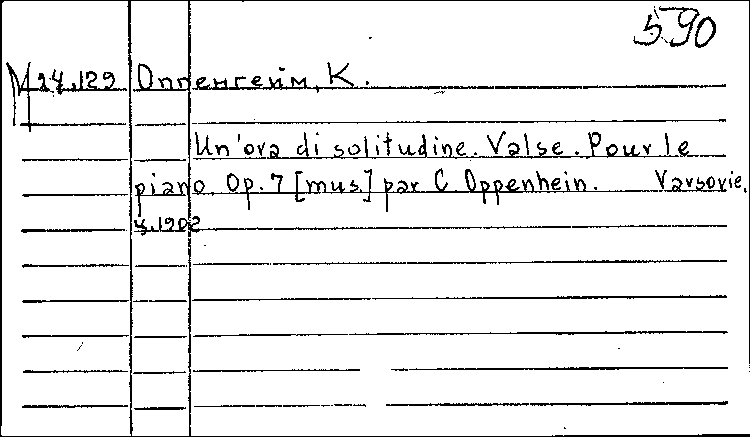 590
M 24.129 Оппенгейм, К.
Un'ora di solitudine. Valse. Pour le
piano. Op. 7 [mus.] par C. Oppenhein. Varsovie,
1902